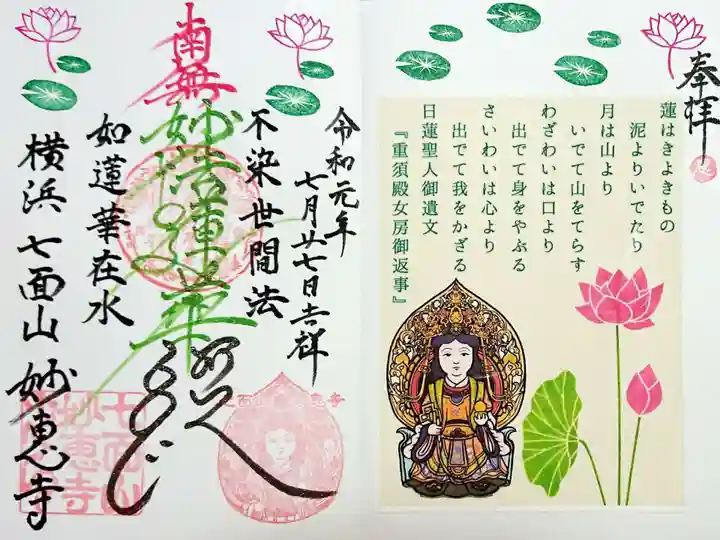 奉拝
蓮はきよきもの
泥よりいでたり
月は山より
いでて山をてらす
わざわいは口より
出でて身をやぶる
さいわいは心より
出でて我をかざる
日蓮聖人御遺文
『重須殿女房御返事』
令和元年
七月廿七日吉祥
不染世間法
南無妙法蓮華経
如蓮華在水
横浜七面山妙恵寺
七面山
妙恵寺